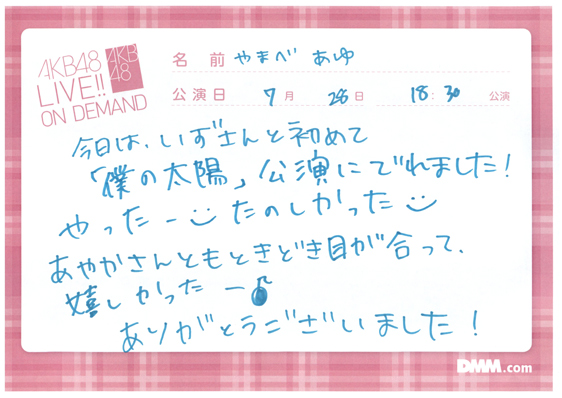 AKB48
LIVE!!
ON DEMAND
AKB
48
名前 やまべ あゆ
公演日 7月 28日 18:30 公演
今日は、いずさんと初めて
「僕の太陽」公演にでれました!
やったー たのしかった
あやかさんともときどき目が合って、
嬉しかったー
ありがとうございました!
DMM.com